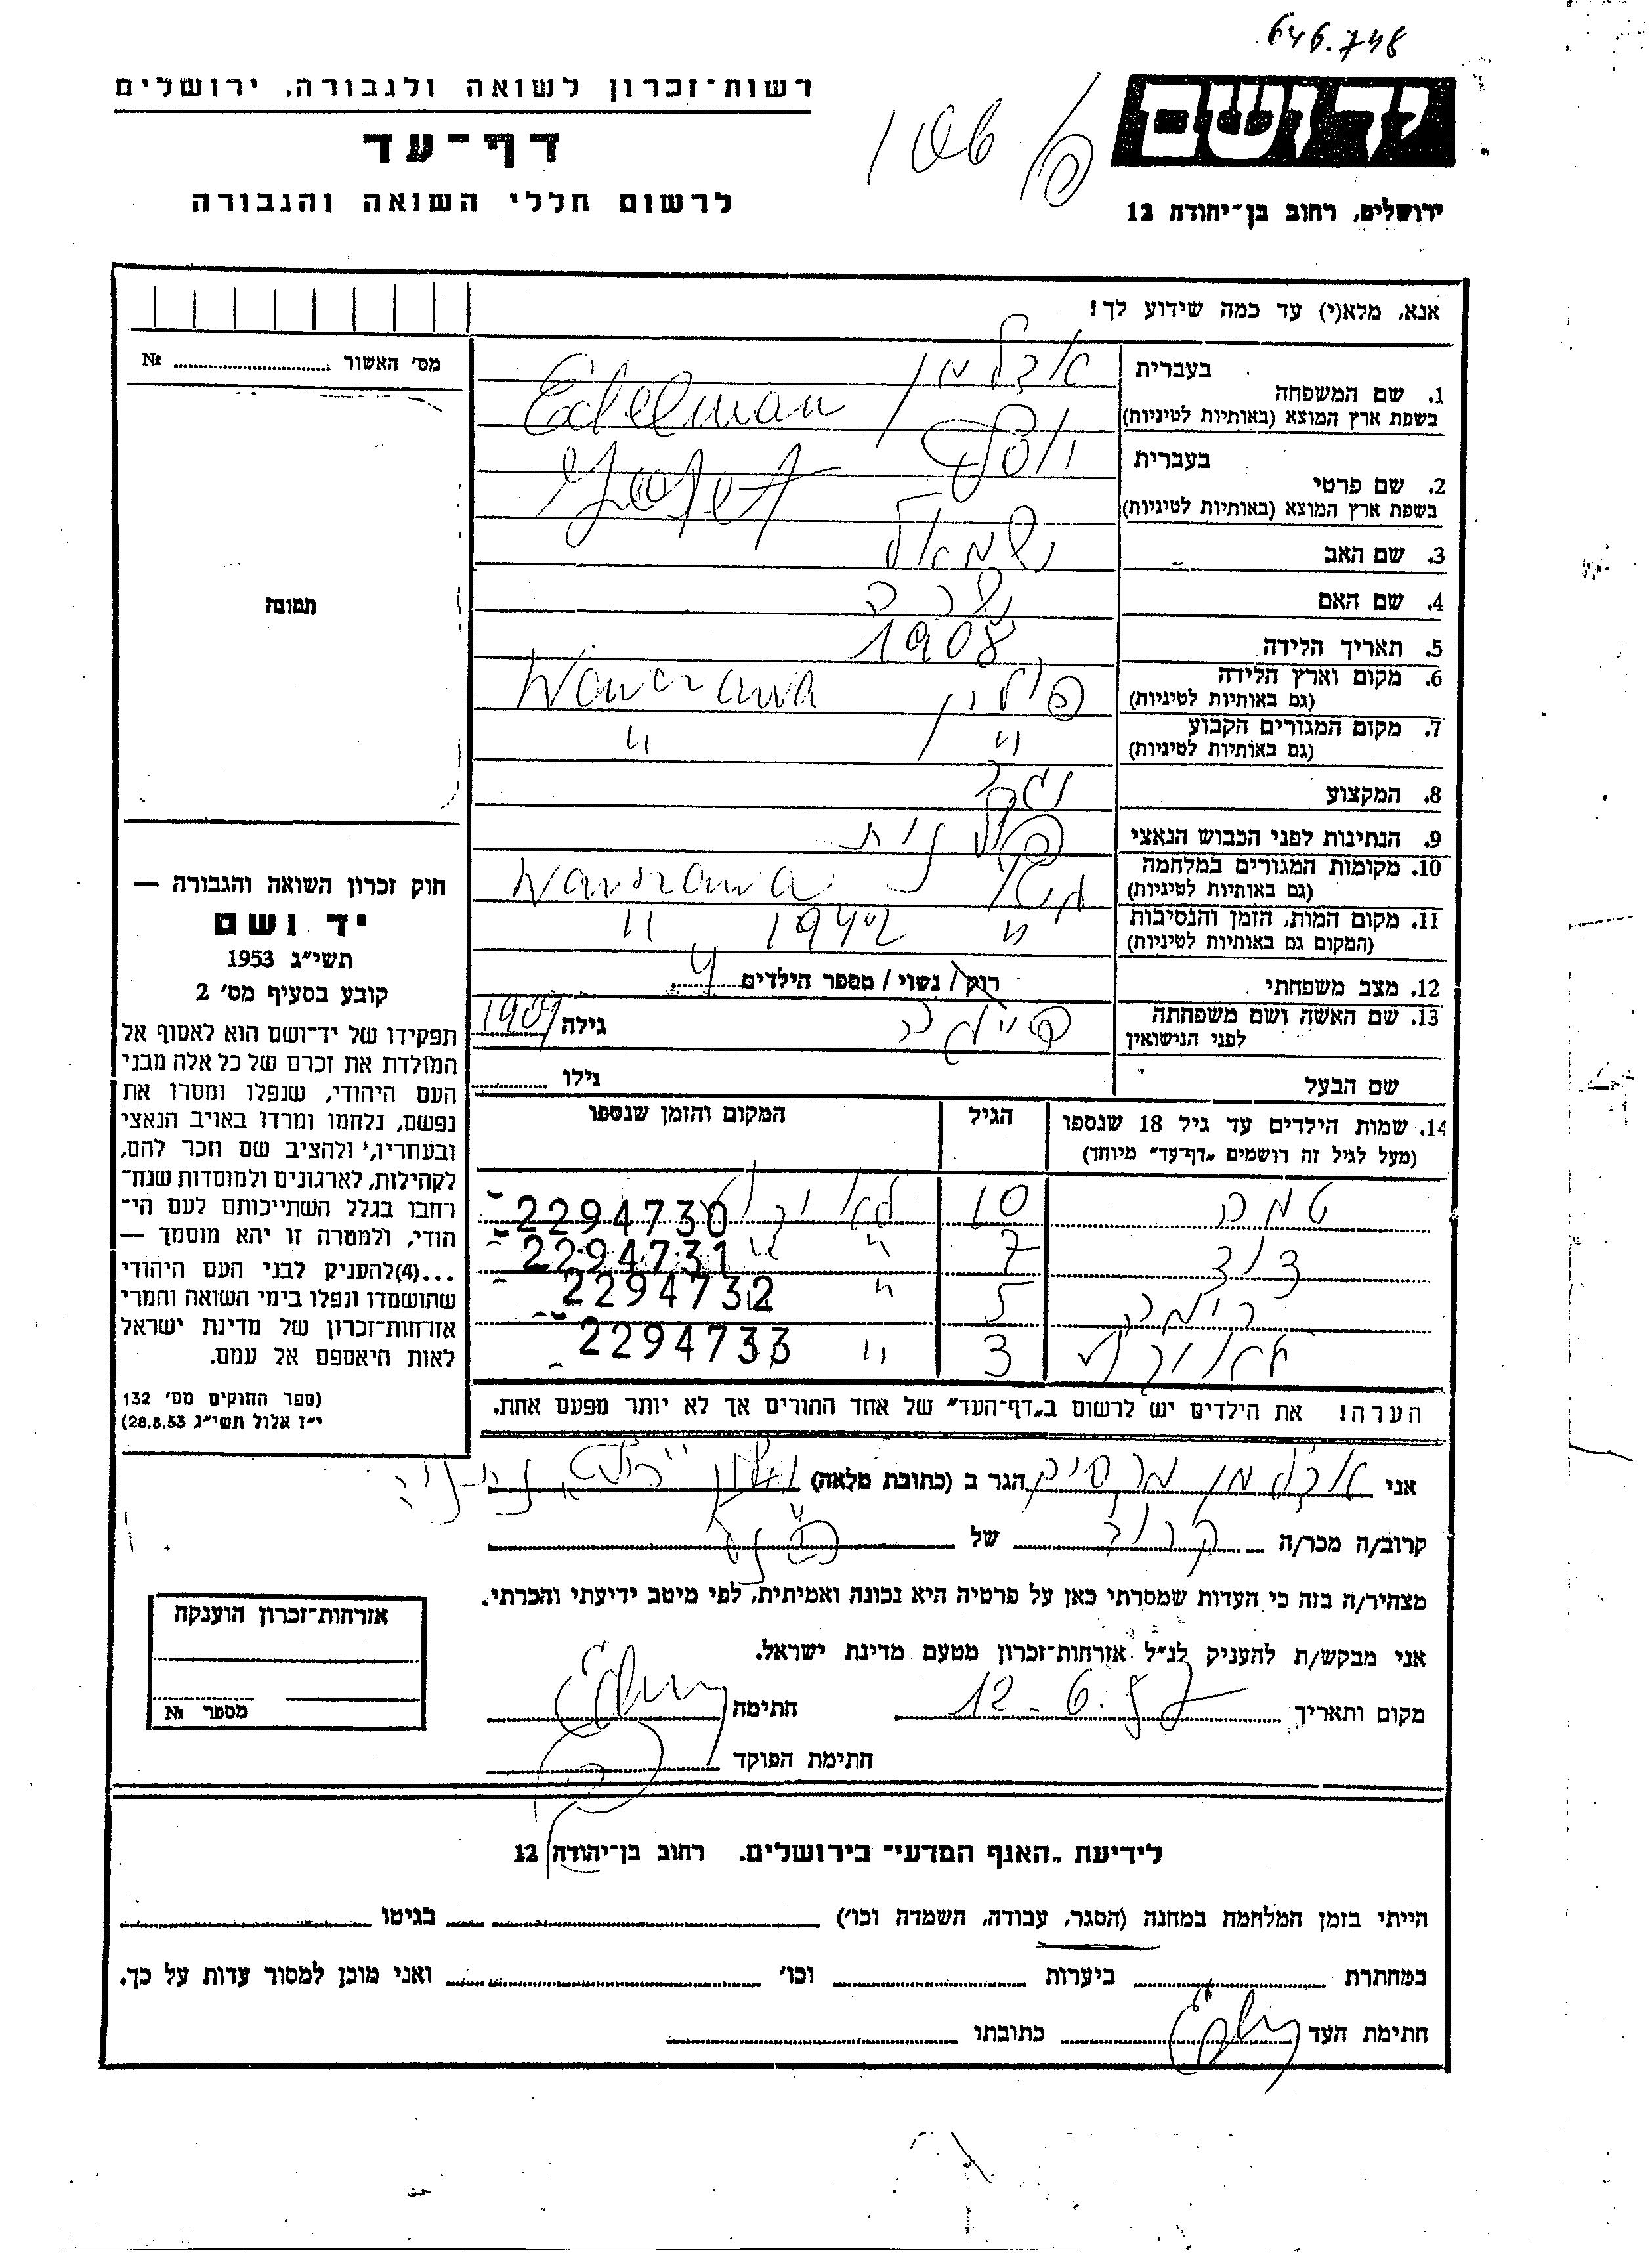 646.748
ידושם
רשות־זכרון לשואה ולגבורה, ירושלים
דף־עד
לרשום חללי השואה והגבורה
ירושלים, רחוב בן־יהודה 12
אנא, מלא(י) עד כמה שידוע לך!
מס׳ האשור № 
תמונה
1. שם המשפחה בעברית אדלמן
בשפת ארץ המוצא (באותיות לטיניות) Edelman
2. שם פרטי בעברית יוסף
בשפת ארץ המוצא (באותיות לטיניות) Josef
3. שם האב שמואל
4. שם האם שרה
5. תאריך הלידה 1908
6. מקום וארץ הלידה (גם באותיות לטיניות) פולין Warszawa
7. מקום המגורים הקבוע (גם באותיות לטיניות) " "
8. המקצוע
9. הנתינות לפני הכבוש הנאצי פולנית
10. מקומות המגורים במלחמה (גם באותיות לטיניות) Warszawa
11. מקום המות, הזמן והנסיבות (המקום גם באותיות לטיניות) " 1942 "
12. מצב משפחתי רווק / נשוי / מספר הילדים 4
13. שם האשה ושם משפחתה לפני הנישואין פייגה גילה 1909
שם הבעל גילו
14. שמות הילדים עד גיל 18 שנספו (מעל לגיל זה רושמים „דף־עד״ מיוחד) הגיל המקום והזמן שנספו
10 2294730
דוד 7 " " 2294731
5 " 2294732
3 " 2294733
הערה! את הילדים יש לרשום ב„דף־העד״ של אחד ההורים אך לא יותר מפעם אחת.
חוק זכרון השואה והגבורה —
יד ושם
תשי״ג 1953
קובע בסעיף מס׳ 2
תפקידו של יד־ושם הוא לאסוף אל
המולדת את זכרם של כל אלה מבני
העם היהודי, שנפלו ומסרו את
נפשם, נלחמו ומרדו באויב הנאצי
ובעוזריו, ולהציב שם וזכר להם,
לקהילות, לארגונים ולמוסדות שנח־
רחבו בגלל השתייכותם לעם הי־
הודי, ולמטרה זו יהא מוסמך —
...(4)להעניק לבני העם היהודי
שהושמדו ונפלו בימי השואה והמרי
אזרחות־זכרון של מדינת ישראל
לאות היאספם אל עמם.
(ספר החוקים מס׳ 132
י״ז אלול תשי״ג 28.8.53)
אני אדלמן הגר ב (כתובת מלאה) נתניה
קרוב/ה מכר/ה קרוב של
מצהיר/ה בזה כי העדות שמסרתי כאן על פרטיה היא נכונה ואמיתית, לפי מיטב ידיעתי והכרתי.
אני מבקש/ת להעניק לנ״ל אזרחות־זכרון מטעם מדינת ישראל.
מקום ותאריך 12-6.57 חתימה
חתימת הפוקד
אזרחות־זכרון הוענקה
מספר №
לידיעת „האגף המדעי״ בירושלים. רחוב בן־יהודה 12
הייתי בזמן המלחמה במחנה (הסגר, עבודה, השמדה וכו׳) בגיטו
במחתרת ביערות וכו׳ ואני מוכן למסור עדות על כך.
חתימת העד כתובתו